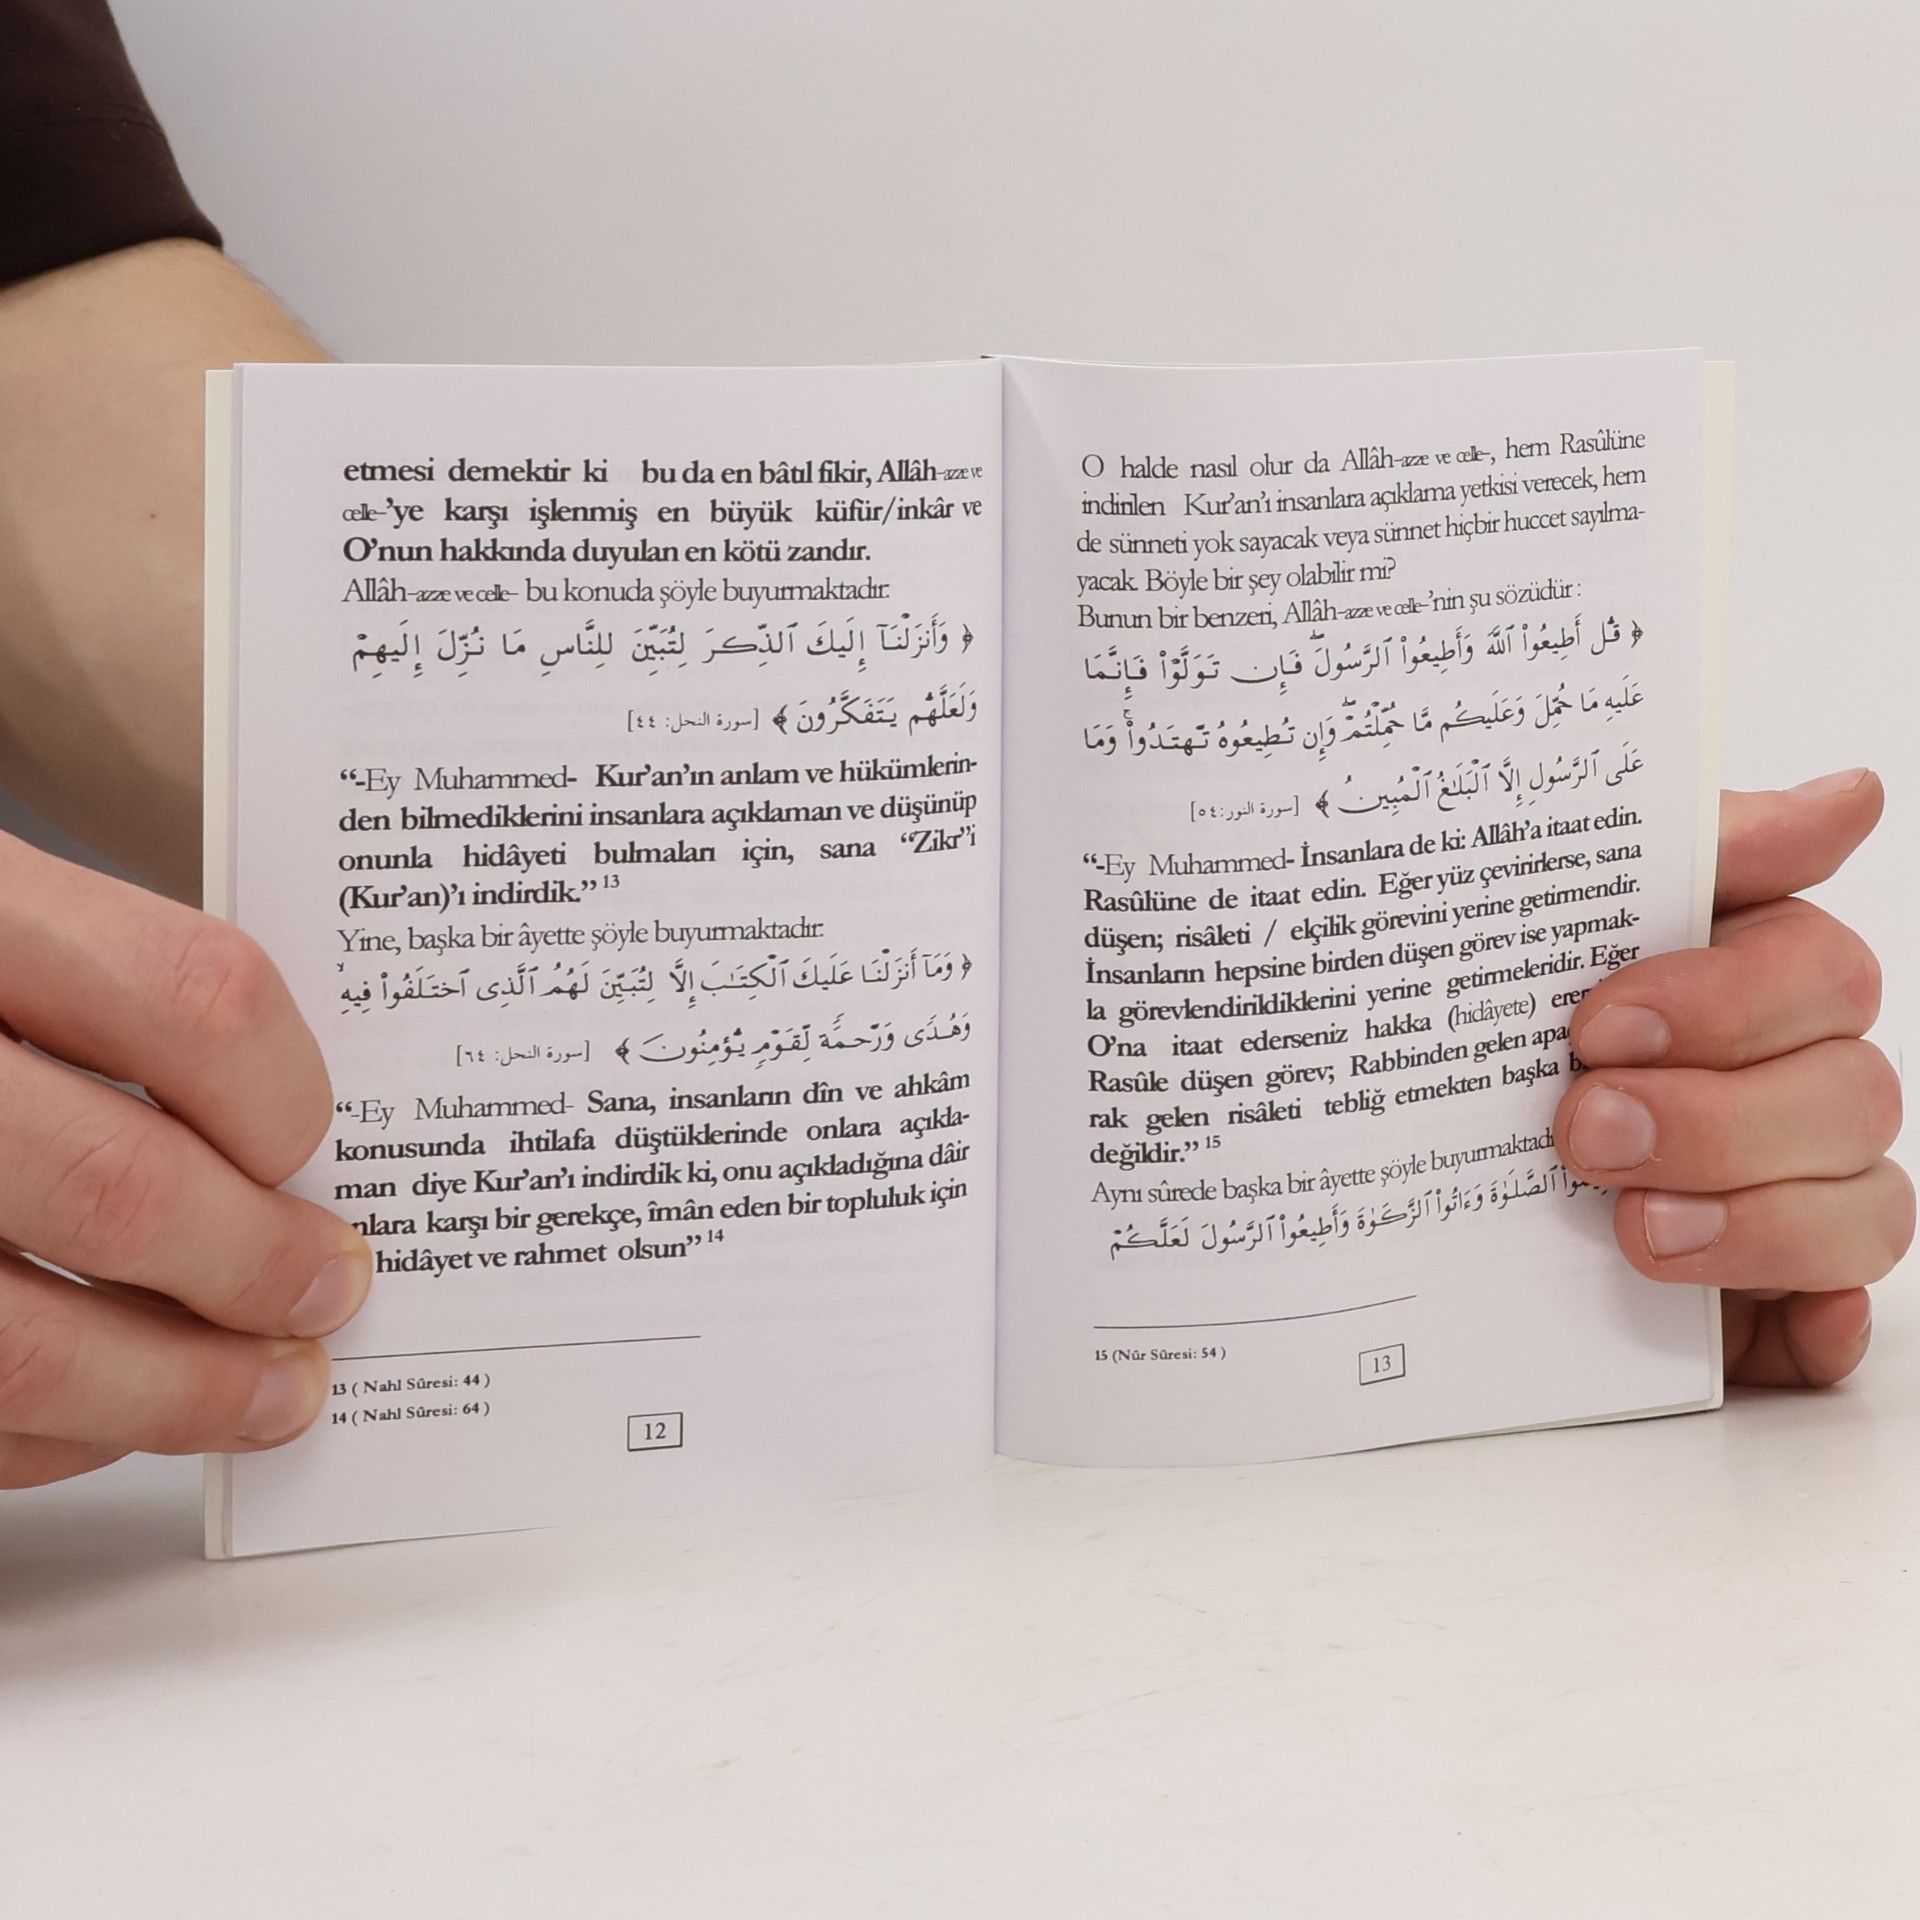 etmesi demektir ki bu da en bâtıl fikir, Allâh-azze ve
celle-'ye karşı işlenmiş en büyük küfür/inkâr ve
O'nun hakkında duyulan en kötü zandır.
Allâh-azze ve celle- bu konuda şöyle buyurmaktadır:
﴿ وَأَنزَلْنَآ إِلَيْكَ ٱلذِّكْرَ لِتُبَيِّنَ لِلنَّاسِ مَا نُزِّلَ إِلَيْهِمْ
وَلَعَلَّهُمْ يَتَفَكَّرُونَ ﴾ [سورة النحل: ٤٤]
“-Ey Muhammed- Kur'an'ın anlam ve hükümlerin-
den bilmediklerini insanlara açıklaman ve düşünüp
onunla hidâyeti bulmaları için, sana “Zikr”i
(Kur'an)'ı indirdik.” 13
Yine, başka bir âyette şöyle buyurmaktadır:
﴿ وَمَآ أَنزَلْنَا عَلَيْكَ ٱلْكِتَـٰبَ إِلَّا لِتُبَيِّنَ لَهُمُ ٱلَّذِى ٱخْتَلَفُوا۟ فِيهِ ۙ
وَهُدًى وَرَحْمَةً لِّقَوْمٍ يُؤْمِنُونَ ﴾ [سورة النحل: ٦٤]
“-Ey Muhammed- Sana, insanların dîn ve ahkâm
konusunda ihtilafa düştüklerinde onlara açıkla-
man diye Kur'an'ı indirdik ki, onu açıkladığına dâir
nlara karşı bir gerekçe, îmân eden bir topluluk için
hidâyet ve rahmet olsun” 14
13 ( Nahl Sûresi: 44 )
14 ( Nahl Sûresi: 64 )
12
O halde nasıl olur da Allâh-azze ve celle-, hem Rasûlüne
indirilen Kur'an'ı insanlara açıklama yetkisi verecek, hem
de sünneti yok sayacak veya sünnet hiçbir huccet sayılma-
yacak. Böyle bir şey olabilir mi?
Bunun bir benzeri, Allâh-azze ve celle-'nin şu sözüdür :
﴿ قُلْ أَطِيعُوا۟ ٱللَّهَ وَأَطِيعُوا۟ ٱلرَّسُولَ ۖ فَإِن تَوَلَّوْا۟ فَإِنَّمَا
عَلَيْهِ مَا حُمِّلَ وَعَلَيْكُم مَّا حُمِّلْتُمْ ۖ وَإِن تُطِيعُوهُ تَهْتَدُوا۟ ۚ وَمَا
عَلَى ٱلرَّسُولِ إِلَّا ٱلْبَلَـٰغُ ٱلْمُبِينُ ﴾ [سورة النور: ٥٤]
“-Ey Muhammed- İnsanlara de ki: Allâh'a itaat edin.
Rasûlüne de itaat edin. Eğer yüz çevirirlerse, sana
düşen; risâleti / elçilik görevini yerine getirmendir.
İnsanların hepsine birden düşen görev ise yapmak-
la görevlendirildiklerini yerine getirmeleridir. Eğer
O'na itaat ederseniz hakka (hidâyete) erer
Rasûle düşen görev; Rabbinden gelen apa
rak gelen risâleti tebliğ etmekten başka b
değildir.” 15
Aynı sûrede başka bir âyette şöyle buyurmaktadı
ٱلصَّلَوٰةَ وَءَاتُوا۟ ٱلزَّكَوٰةَ وَأَطِيعُوا۟ ٱلرَّسُولَ لَعَلَّكُمْ
15 (Nûr Sûresi: 54 )
13